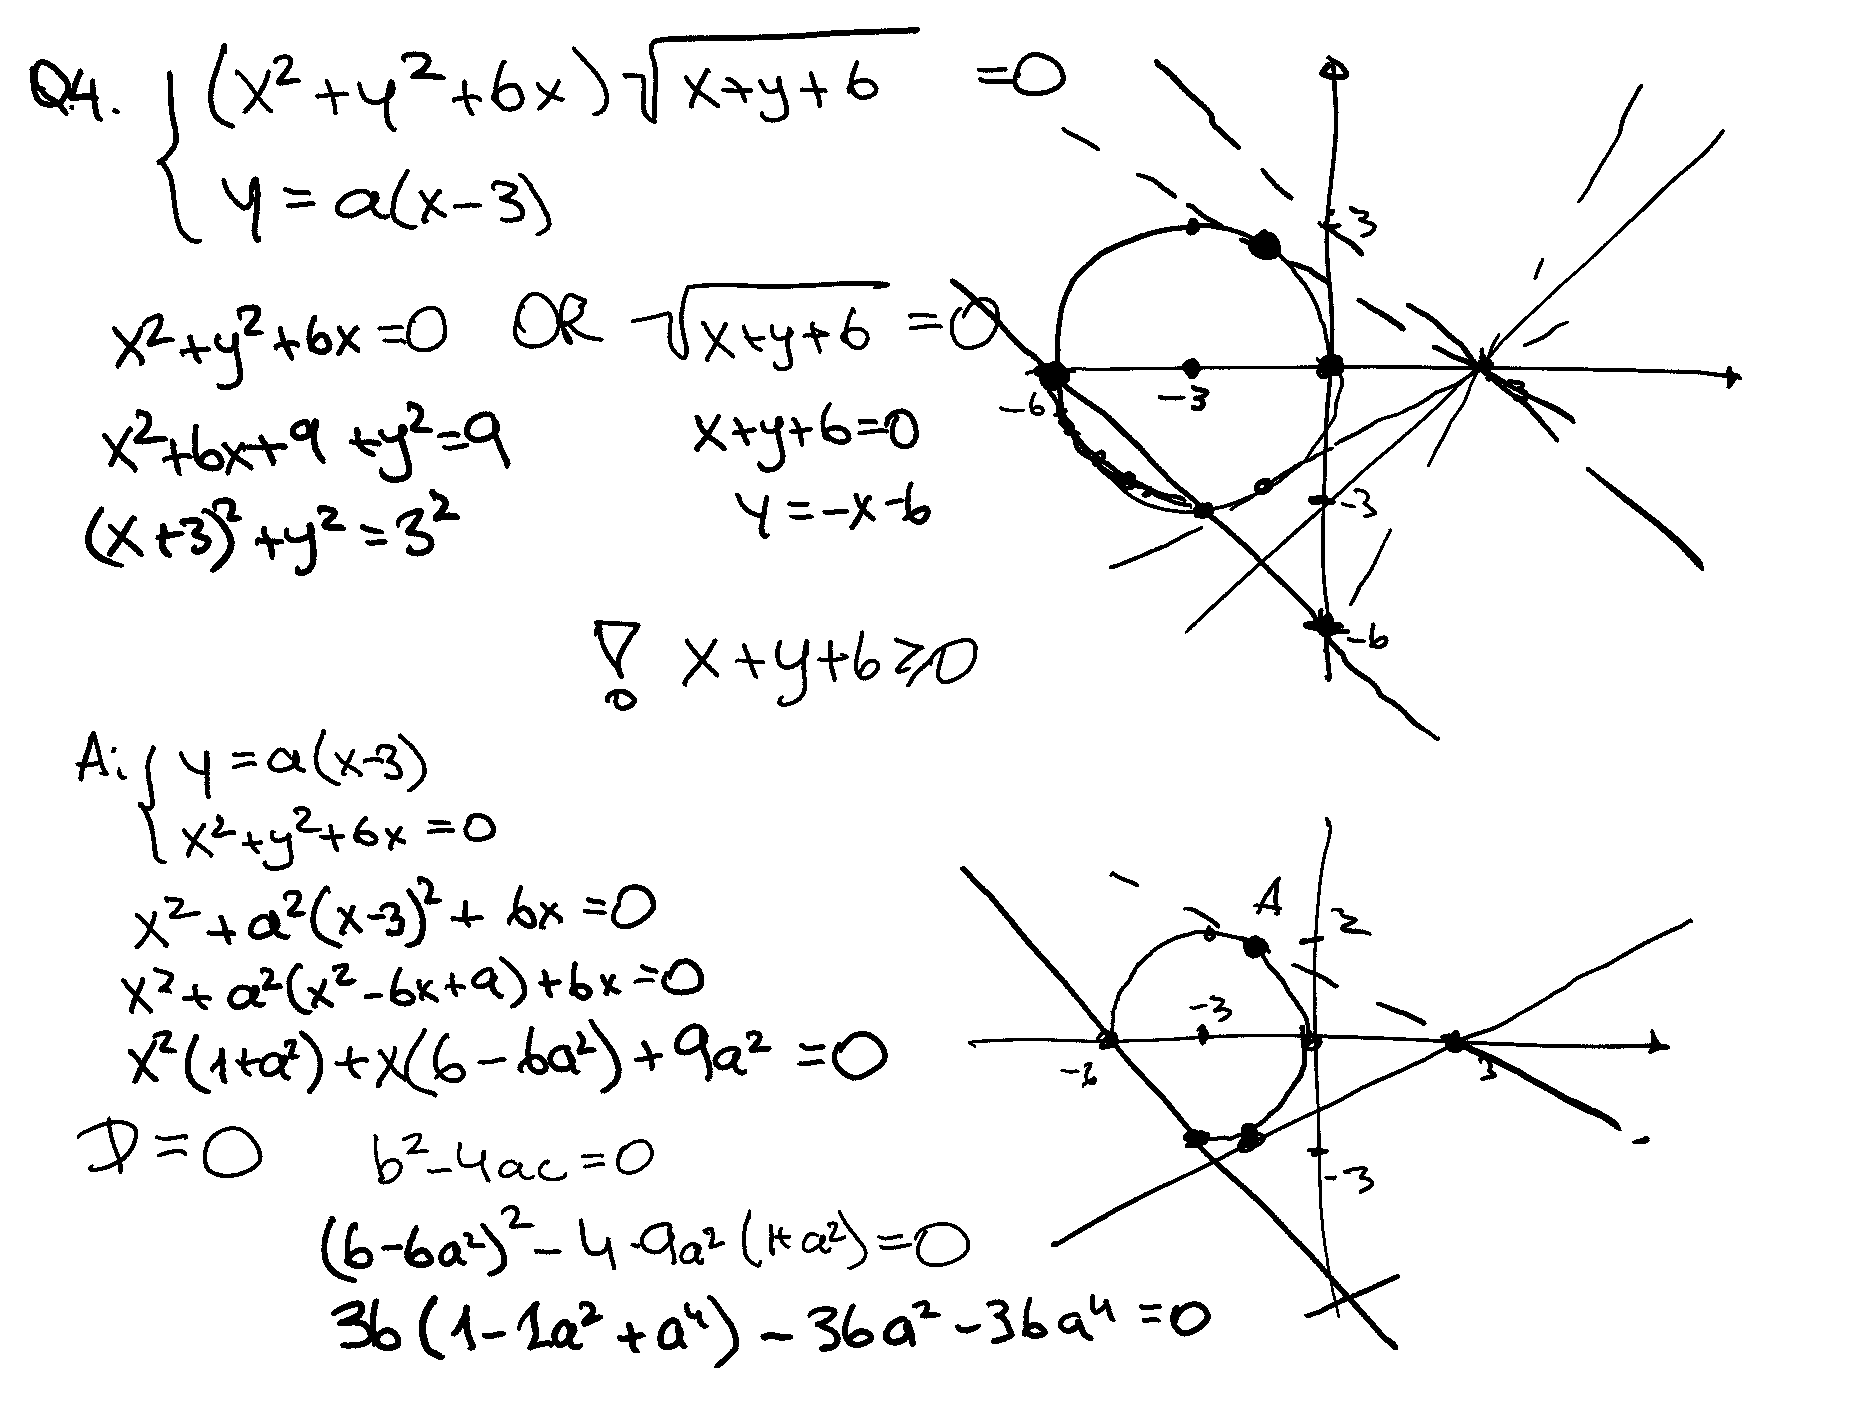 Q4. { (x²+y²+6x)√(x+y+6) =0
y = a(x-3)
x²+y²+6x=0 OR √(x+y+6) =0
x²+6x+9+y²=9 x+y+6=0
(x+3)²+y²=3² y=-x-6
! x+y+6≥0
3
-6 -3 3
-3
-6
A: { y=a(x-3)
x²+y²+6x=0
x²+a²(x-3)²+6x=0
x²+a²(x²-6x+9)+6x=0
x²(1+a²)+x(6-6a²)+9a²=0
D=0 b²-4ac=0
(6-6a²)²-4·9a²(1+a²)=0
36(1-2a²+a⁴)-36a²-36a⁴=0
A
-3
3
-3